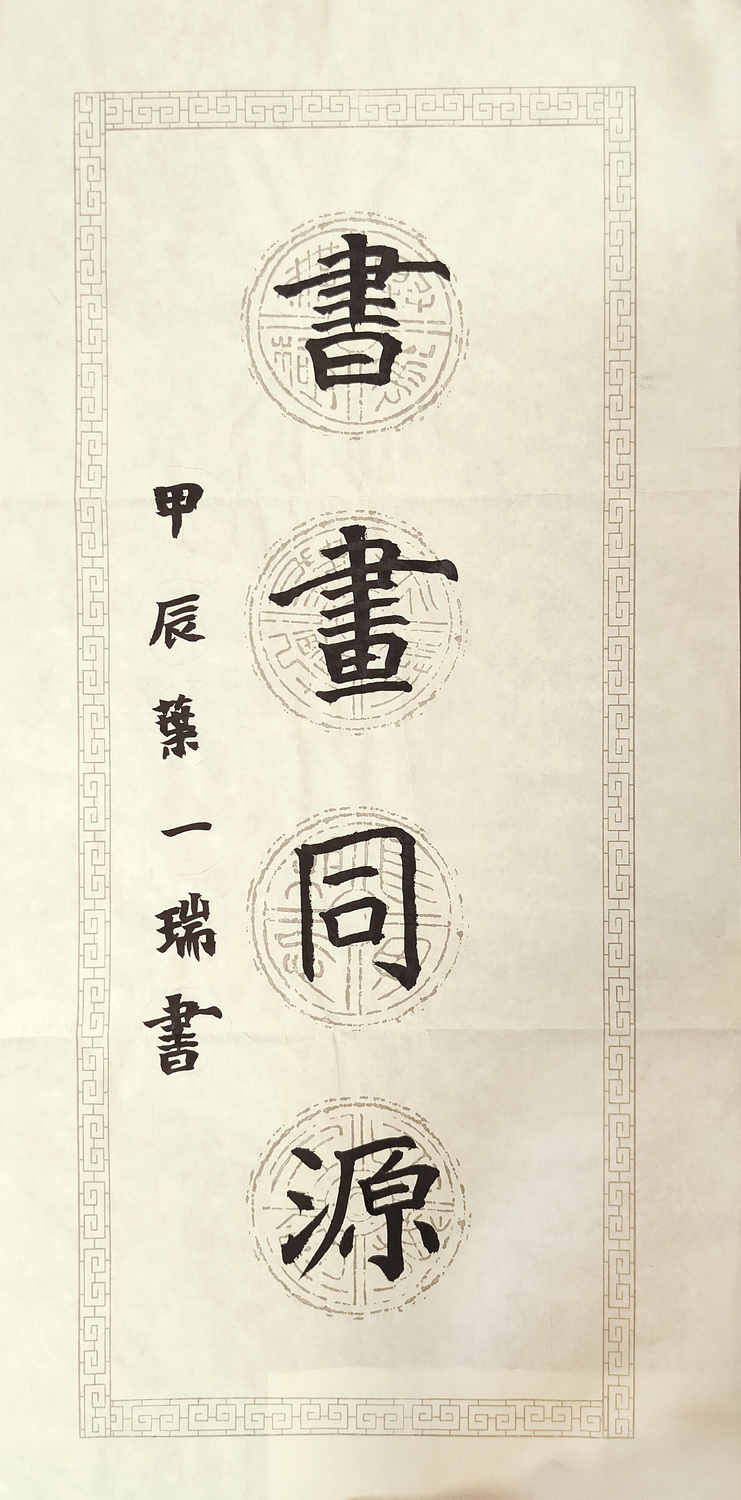 書畫同源
甲辰葉一瑞書